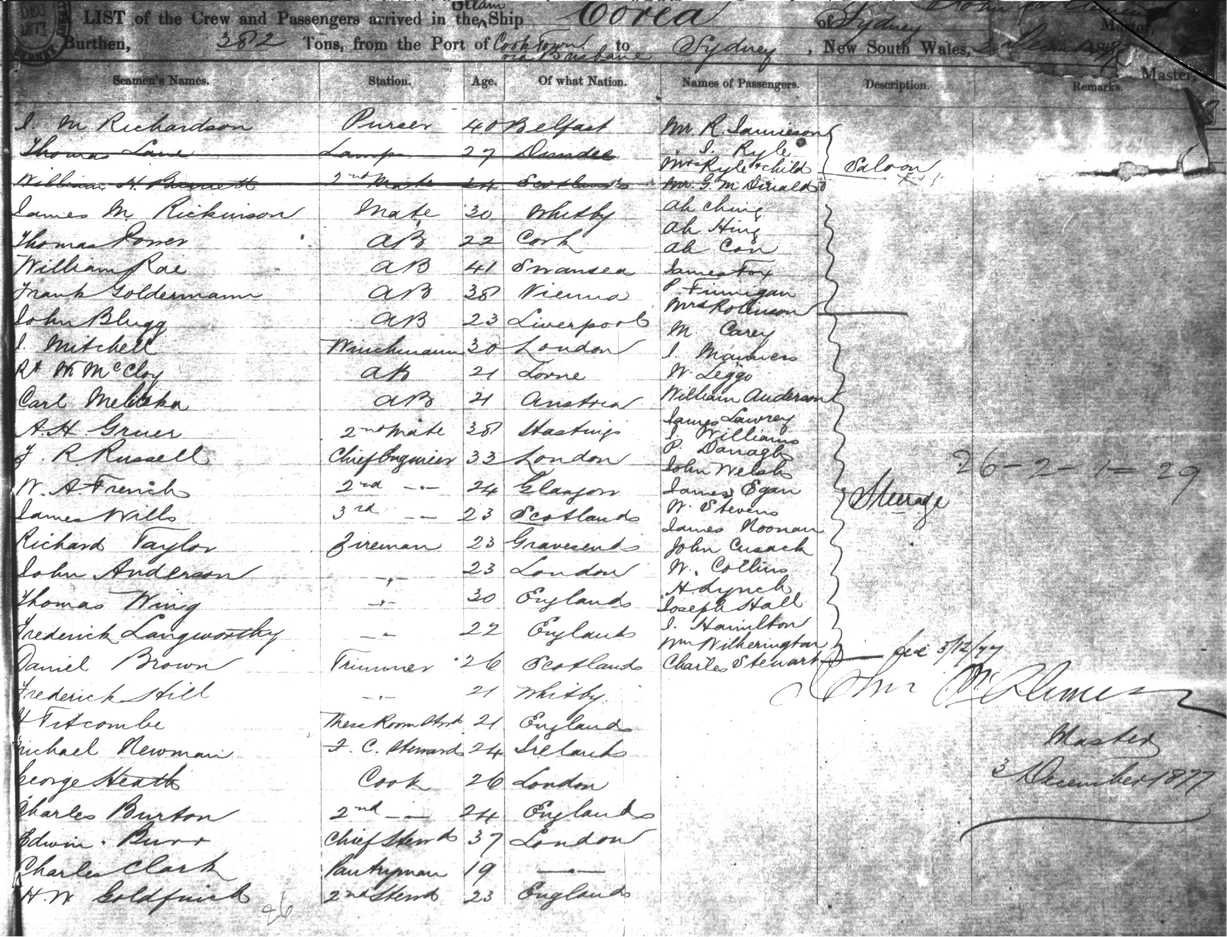 LIST of the Crew and Passengers arrived in the Steam Ship Corea of Sydney Master,
Burthen, 382 Tons, from the Port of Cooktown via Brisbane to Sydney, New South Wales,
Master,
Seamen's Names. Station. Age. Of what Nation. Names of Passengers. Description. Remarks.
J. M Richardson Purser 40 Belfast Mr. R. Jamieson
Thomas Lane Lamps 27 Dundee J. Ryle
Mrs Ryle & child Saloon
William H. Bennett 2nd Mate 24 Scotland Mr. G. McDonald
James M. Rickinson Mate 30 Whitby Ah Ching
Ah Hing
Thomas Power AB 22 Cork Ah Con
William Rae AB 41 Swansea James Fox
Frank Goldermann AB 38 Vienna P. Finnigan
Mrs Robinson
John Blugg AB 23 Liverpool M Carey
J. Mitchell Winchman 30 London J. Manners
Rt W McCloy AB 21 Lorne W. Leggo
Carl AB 21 Austria William Anderson
James Lawrey
A. H. Gruer 2nd Mate 38 Hastings J Williams
P. Darragh
J. R. Russell Chief Engineer 33 London John Welsh
26-2-1-29
W. A French 2nd -"- 24 Glasgow James Egan
Steerage
James Wills 3rd -"- 23 Scotland W. Stevens
James Noonan
Richard Taylor Fireman 23 Gravesend John Cusack
John Anderson -"- 23 London W. Collins
H Lynch
Thomas Wing -"- 30 England Joseph Hall
J. Hamilton
Frederick Langworthy -"- 22 England Wm Witherington
Daniel Brown Trimmer 26 Scotland Charles Stewart 3/12/77
Frederick Hill -"- 21 Whitby
Titcombe 21 England
Michael Newman F. C. Steward 24 Ireland
Master
George Heath Cook 26 London
3 December 1877
Charles Burton 2nd -"- 24 England
Edwin Burr Chief Stewd 37 London
Charles Clark Pantryman 19 -"-
H. W Goldfinch 2nd Stewd 23 England
26